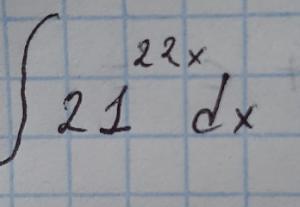 ∫ 21^{22x} dx